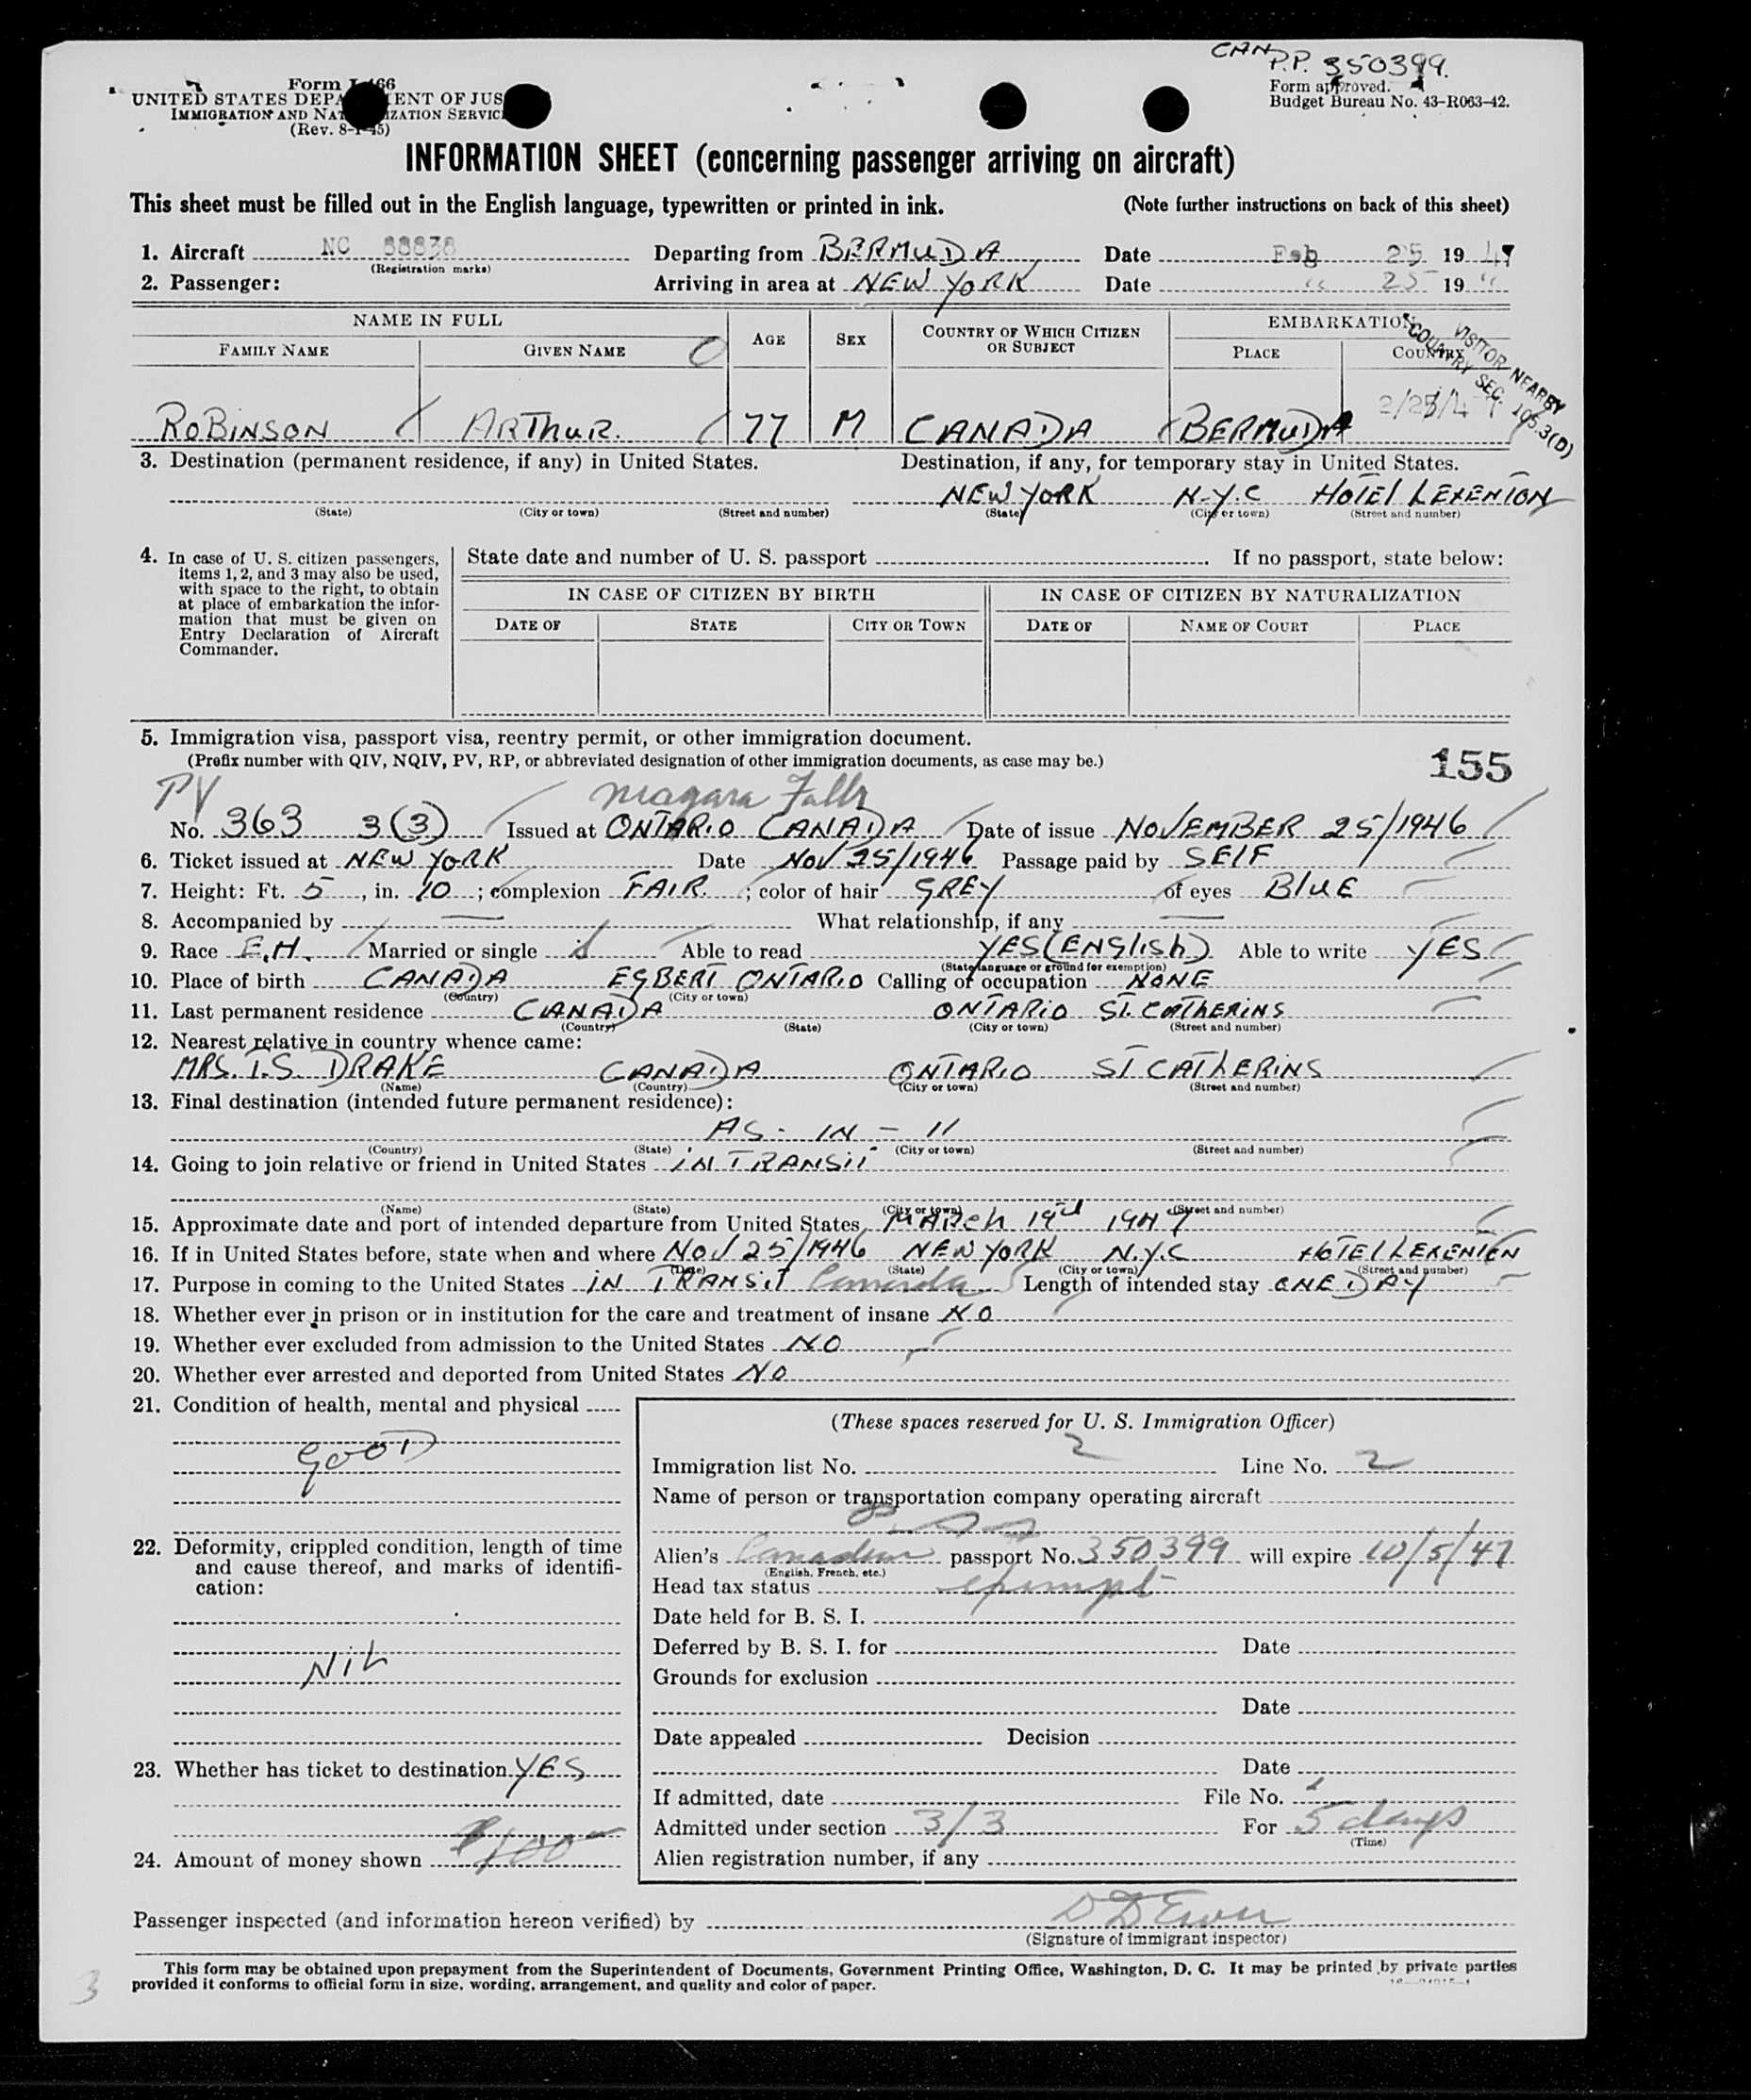 CAN P.P. 350399.
Form I-466
UNITED STATES DEPARTMENT OF JUSTICE
IMMIGRATION AND NATURALIZATION SERVICE
(Rev. 8-1-45)
Form approved.
Budget Bureau No. 43-R063-42.
INFORMATION SHEET (concerning passenger arriving on aircraft)
This sheet must be filled out in the English language, typewritten or printed in ink. (Note further instructions on back of this sheet)
1. Aircraft NC 88838 Departing from BERMUDA Date Feb 25 1947
(Registration marks)
2. Passenger: Arriving in area at NEW YORK Date " 25 19 "
NAME IN FULL AGE SEX COUNTRY OF WHICH CITIZEN OR SUBJECT EMBARKATION
FAMILY NAME GIVEN NAME PLACE COUNTRY
VISITOR NEARBY
COUNTRY SEC. 105.3(D)
ROBINSON ARTHUR. 77 M CANADA BERMUDA
3. Destination (permanent residence, if any) in United States. Destination, if any, for temporary stay in United States.
NEW YORK N.Y.C HOTEL LEXENTON
(State) (City or town) (Street and number) (State) (City or town) (Street and number)
4. In case of U. S. citizen passengers, items 1, 2, and 3 may also be used, with space to the right, to obtain at place of embarkation the information that must be given on Entry Declaration of Aircraft Commander.
State date and number of U. S. passport . If no passport, state below:
IN CASE OF CITIZEN BY BIRTH IN CASE OF CITIZEN BY NATURALIZATION
DATE OF STATE CITY OR TOWN DATE OF NAME OF COURT PLACE
5. Immigration visa, passport visa, reentry permit, or other immigration document.
(Prefix number with QIV, NQIV, PV, RP, or abbreviated designation of other immigration documents, as case may be.)
155
PV Niagara Falls
No. 363 3(3) Issued at ONTARIO CANADA Date of issue NOVEMBER 25/1946
6. Ticket issued at NEW YORK Date NOV 25/1946 Passage paid by SELF
7. Height: Ft. 5, in. 10; complexion FAIR.; color of hair GREY of eyes BLUE
8. Accompanied by — What relationship, if any —
9. Race E.H. Married or single S Able to read YES (ENGLISH) Able to write YES
(State language or ground for exemption)
10. Place of birth CANADA EGBERT ONTARIO Calling or occupation NONE
(Country) (City or town)
11. Last permanent residence CANADA ONTARIO ST. CATHERINS
(Country) (State) (City or town) (Street and number)
12. Nearest relative in country whence came:
MRS. T.S. DRAKE CANADA ONTARIO ST CATHERINS
(Name) (Country) (City or town) (Street and number)
13. Final destination (intended future permanent residence):
AS - IN - 11
(Country) (State) (City or town) (Street and number)
14. Going to join relative or friend in United States IN TRANSIT
(Name) (State) (City or town) (Street and number)
15. Approximate date and port of intended departure from United States MARCH 1947
16. If in United States before, state when and where NOV 25/1946 NEW YORK N.Y.C HOTEL LEXENTEN
(Date) (State) (City or town) (Street and number)
17. Purpose in coming to the United States IN TRANSIT Canada Length of intended stay ONE DAY
18. Whether ever in prison or in institution for the care and treatment of insane NO
19. Whether ever excluded from admission to the United States NO
20. Whether ever arrested and deported from United States NO
21. Condition of health, mental and physical
GOOD
22. Deformity, crippled condition, length of time and cause thereof, and marks of identification:
NIL
23. Whether has ticket to destination YES
24. Amount of money shown $100
(These spaces reserved for U. S. Immigration Officer)
Immigration list No. 2 Line No. 2
Name of person or transportation company operating aircraft
Alien's Canadian passport No. 350399 will expire 10/5/47
(English, French, etc.)
Head tax status exempt
Date held for B. S. I.
Deferred by B. S. I. for Date
Grounds for exclusion
Date
Date appealed Decision
Date
If admitted, date File No.
Admitted under section 3/3 For 5 days
(Time)
Alien registration number, if any
Passenger inspected (and information hereon verified) by
(Signature of immigrant inspector)
This form may be obtained upon prepayment from the Superintendent of Documents, Government Printing Office, Washington, D. C. It may be printed by private parties
provided it conforms to official form in size, wording, arrangement, and quality and color of paper.
3